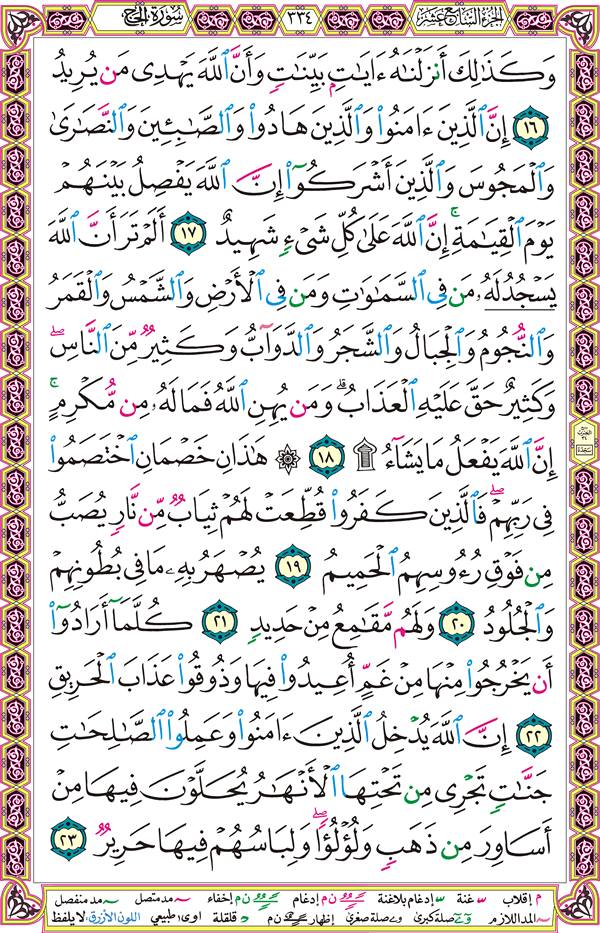 الجزء السابع عشر ٣٣٤ سورة الحج
وَكَذَٰلِكَ أَنزَلْنَٰهُ ءَايَٰتٍۭ بَيِّنَٰتٍ وَأَنَّ ٱللَّهَ يَهْدِى مَن يُرِيدُ
١٦ إِنَّ ٱلَّذِينَ ءَامَنُوا۟ وَٱلَّذِينَ هَادُوا۟ وَٱلصَّٰبِـِٔينَ وَٱلنَّصَٰرَىٰ
وَٱلْمَجُوسَ وَٱلَّذِينَ أَشْرَكُوٓا۟ إِنَّ ٱللَّهَ يَفْصِلُ بَيْنَهُمْ
يَوْمَ ٱلْقِيَٰمَةِ ۚ إِنَّ ٱللَّهَ عَلَىٰ كُلِّ شَىْءٍ شَهِيدٌ ١٧ أَلَمْ تَرَ أَنَّ ٱللَّهَ
يَسْجُدُ لَهُۥ مَن فِى ٱلسَّمَٰوَٰتِ وَمَن فِى ٱلْأَرْضِ وَٱلشَّمْسُ وَٱلْقَمَرُ
وَٱلنُّجُومُ وَٱلْجِبَالُ وَٱلشَّجَرُ وَٱلدَّوَآبُّ وَكَثِيرٌ مِّنَ ٱلنَّاسِ ۖ
وَكَثِيرٌ حَقَّ عَلَيْهِ ٱلْعَذَابُ ۗ وَمَن يُهِنِ ٱللَّهُ فَمَا لَهُۥ مِن مُّكْرِمٍ ۚ
إِنَّ ٱللَّهَ يَفْعَلُ مَا يَشَآءُ ۩ ١٨ ۞ هَٰذَانِ خَصْمَانِ ٱخْتَصَمُوا۟
فِى رَبِّهِمْ ۖ فَٱلَّذِينَ كَفَرُوا۟ قُطِّعَتْ لَهُمْ ثِيَابٌ مِّن نَّارٍ يُصَبُّ
مِن فَوْقِ رُءُوسِهِمُ ٱلْحَمِيمُ ١٩ يُصْهَرُ بِهِۦ مَا فِى بُطُونِهِمْ
وَٱلْجُلُودُ ٢٠ وَلَهُم مَّقَٰمِعُ مِنْ حَدِيدٍ ٢١ كُلَّمَآ أَرَادُوٓا۟
أَن يَخْرُجُوا۟ مِنْهَا مِنْ غَمٍّ أُعِيدُوا۟ فِيهَا وَذُوقُوا۟ عَذَابَ ٱلْحَرِيقِ
٢٢ إِنَّ ٱللَّهَ يُدْخِلُ ٱلَّذِينَ ءَامَنُوا۟ وَعَمِلُوا۟ ٱلصَّٰلِحَٰتِ
جَنَّٰتٍ تَجْرِى مِن تَحْتِهَا ٱلْأَنْهَٰرُ يُحَلَّوْنَ فِيهَا مِنْ
أَسَاوِرَ مِن ذَهَبٍ وَلُؤْلُؤًا ۖ وَلِبَاسُهُمْ فِيهَا حَرِيرٌ ٢٣
م إقلاب غنة إدغام بلاغنة ن م إدغام ن م إخفاء مد متصل مد منفصل
المد اللازم صلة كبرى صلة صغرى إظهار ن م قلقلة اوى طبيعي اللون الأزرق: لا يلفظ